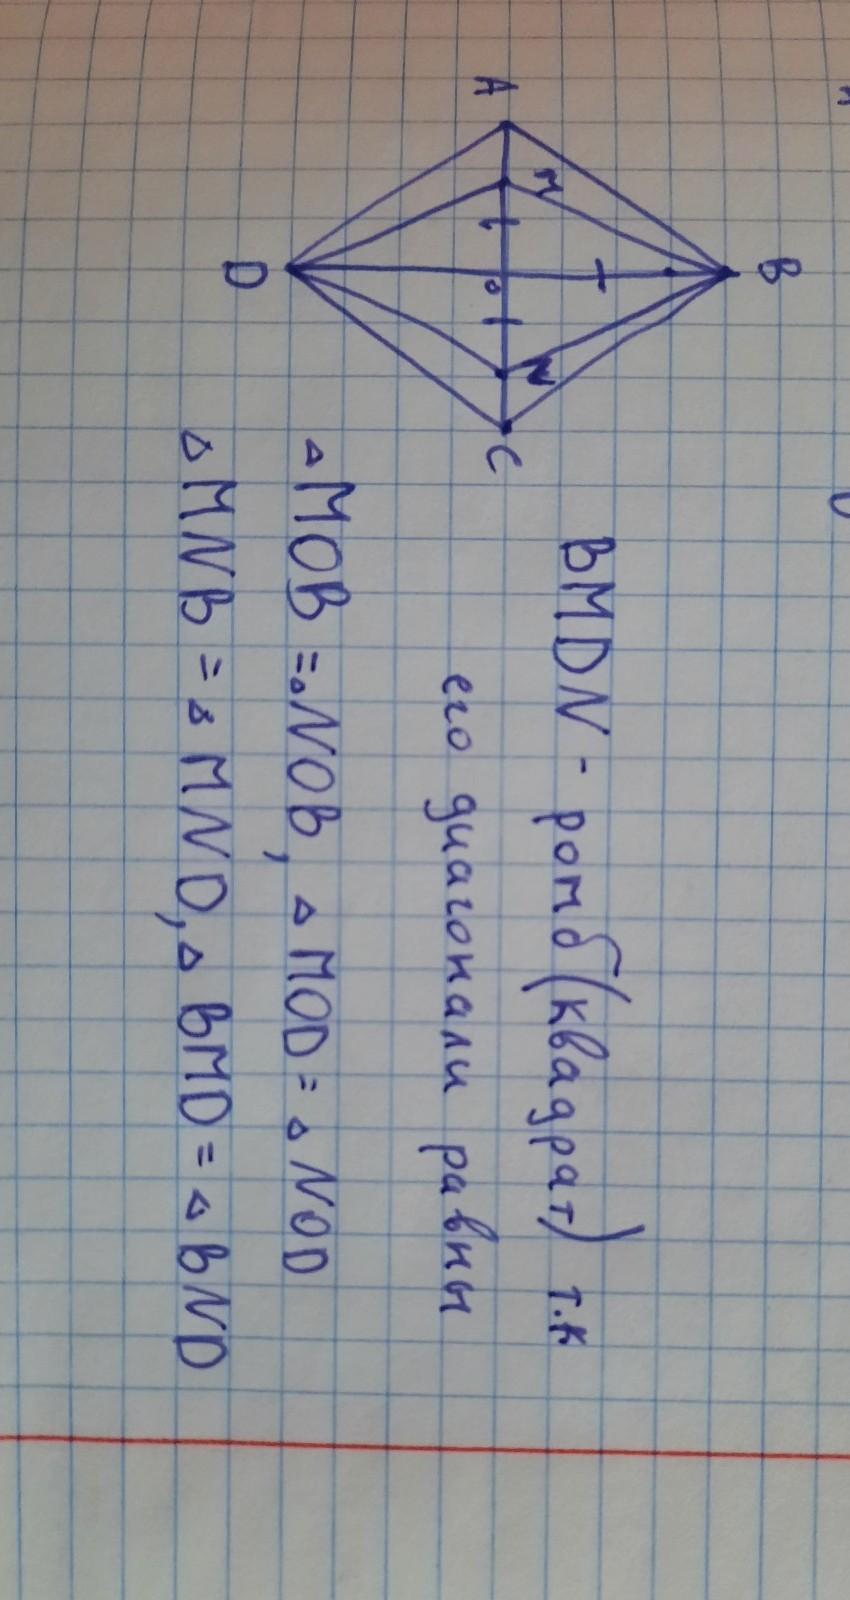 A
M
B
D
o
N
C
BMDN - ромб (квадрат) т.к
его диагонали равны
△MOB = △NOB, △MOD = △NOD
△MNB = △MND, △BMD = △BND